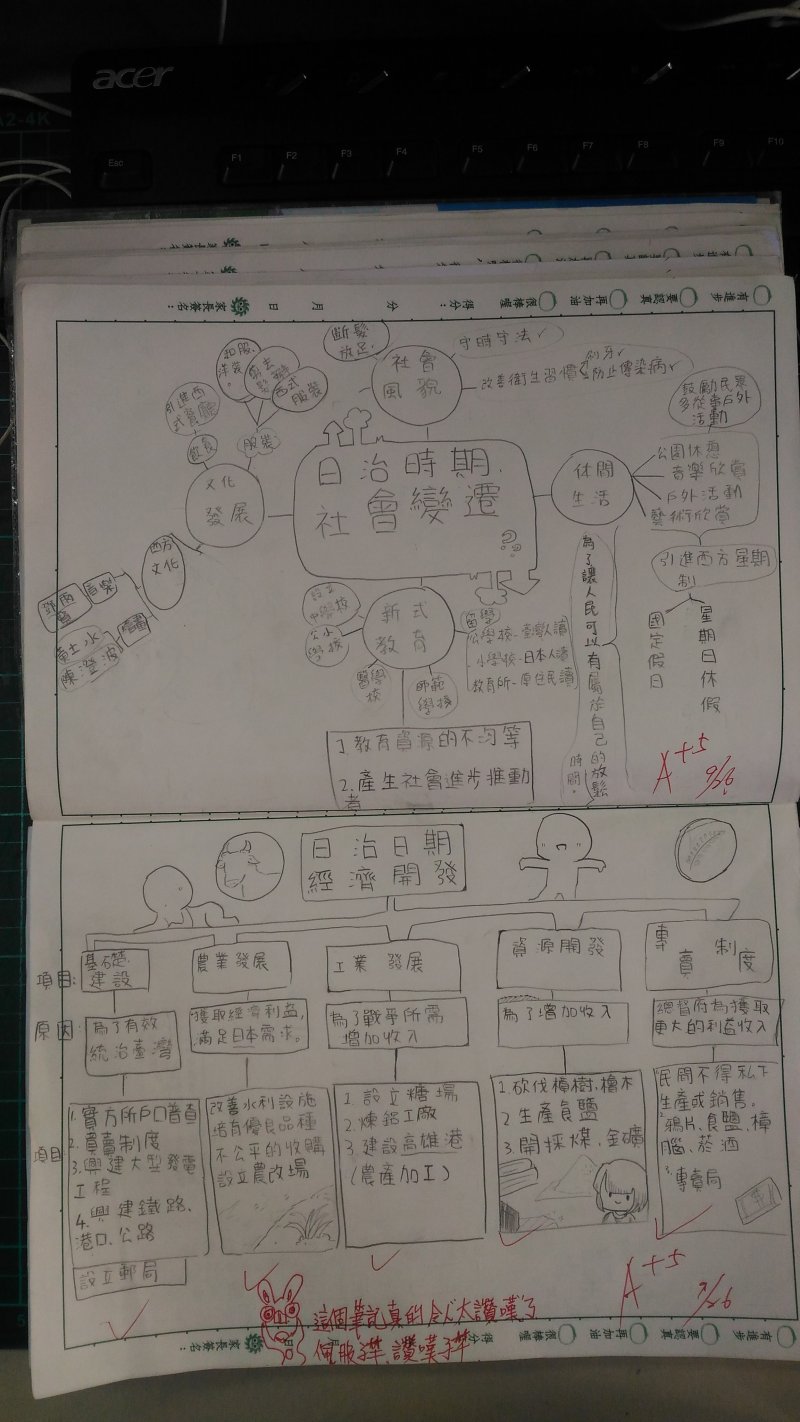 acer
A2-4K
Esc
F1
F2
F3
F4
F5
F6
F7
F8
F9
F10
有進步
要認真
再加油
很棒喔
得分：
分
月
日
家長簽名：
斷髮
放足
社會
風貌
守時守法✓
刷牙✓
改善衛生習慣
防止傳染病✓
鼓勵民眾
多從事戶外
活動
和服、
洋裝。
西式
服裝
引進西
式餐廳
服裝
文化
發展
西方
文化
音樂
鄧雨賢
繪畫
黃土水
陳澄波
日治時期、
社會變遷
休閒
生活
公園休憩
音樂欣賞
戶外活動
藝術欣賞
引進西方星期
制
星期日休假
國定假日
為了讓人民可以有屬於自己的放鬆
時間。
新式
教育
設立
中學校
公小
學校
醫學
校
師範
學校
留學
公學校-臺灣人讀
小學校-日本人讀
教育所-原住民讀
1.教育資源的不均等
2.產生社會進步推動
者
A+5
9/26
日治日期
經濟開發
項目:
基礎
建設
農業發展
工業發展
資源開發
專賣制度
原因:
為了有效
統治臺灣
獲取經濟利益,
滿足日本需求。
為了戰爭所需
增加收入
為了增加收入
總督府為獲取
更大的利益收入
項目
1.實方所戶口普查
2.買賣制度
3.興建大型發電
工程
4.興建鐵路、
港口、公路
設立郵局
改善水利設施
培育優良品種
不公平的收購
設立農改場
1.設立糖場
2.煉鋁工廠
3.建設高雄港
(農產加工)
1.砍伐樟樹、檜木
2.生產食鹽
3.開採煤、金礦
民間不得私下
生產或銷售。
鴉片、食鹽、樟
腦、菸酒
專賣局
A+5
9/26
這個筆記真的太讚嘆了
佩服、讚嘆
有進步
要認真
再加油
很棒喔
得分：
分
月
日
家長簽名：